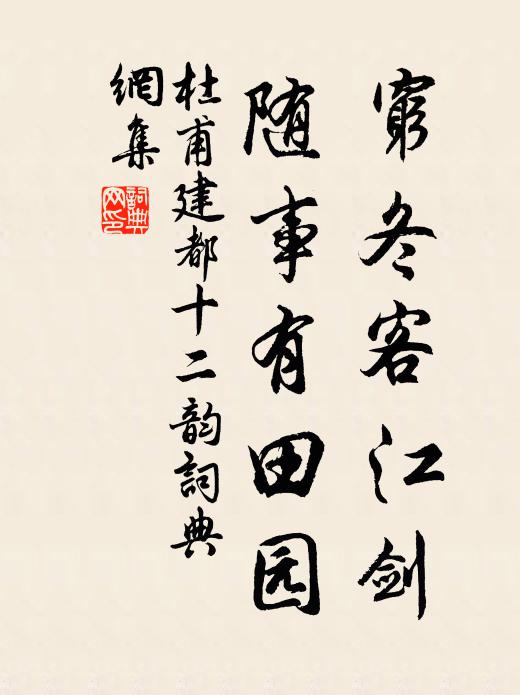 窮冬客江剑
随事有田园
杜甫建都十二韵詞典
網集
詞典网印